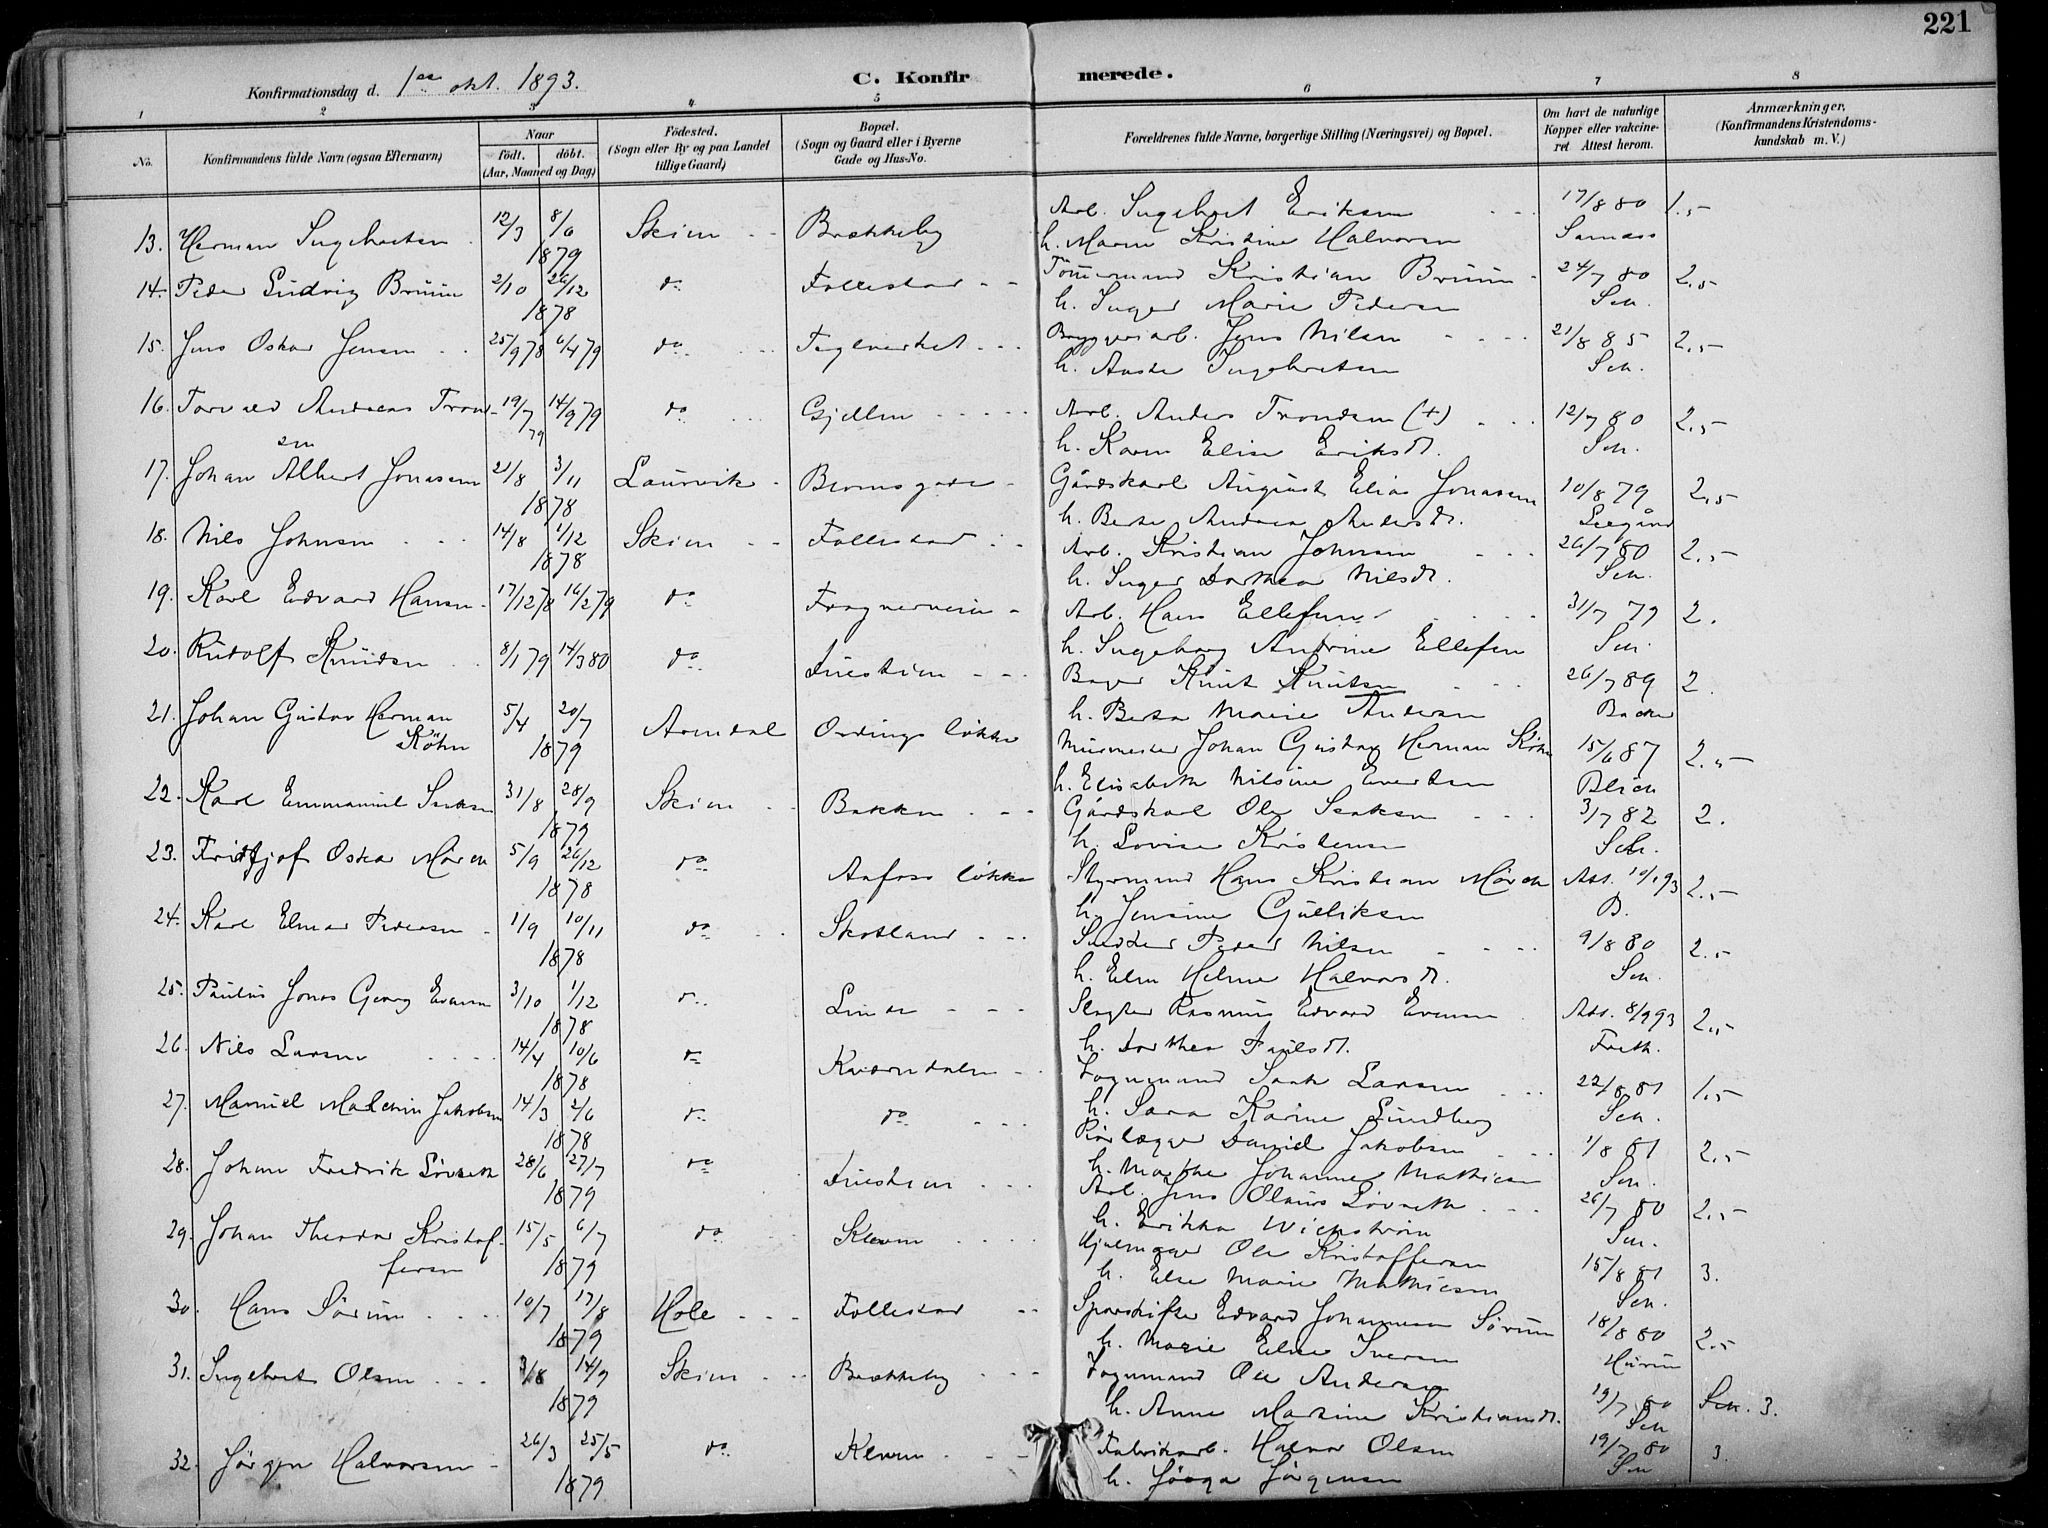 221
Konfirmationsdag d. 1ste okt. 1893. C. Konfirmerede.
1 2 3 4 5 6 7 8
No. Konfirmandens fulde Navn (ogsaa Efternavn) Naar født. døbt. (Aar, Maaned og Dag) Fødested. (Sogn eller By og paa Landet tillige Gaard) Bopæl. (Sogn og Gaard eller i Byerne Gade og Hus-No. Forældrenes fulde Navne, borgerlige Stilling (Næringsvei) og Bopæl. Om havt de naturlige Kopper eller vakcineret Attest herom. Anmærkninger, (Konfirmandens Kristendomskundskab m. V.)
13. Herman Ingebretsen 12/3 8/6 1879 Skien Brekkeby Arb. Ingebret Eriksen 17/8 80 1.5
h. Maren Kristine Halvorsen
14. Peder Ludvig Bruun 2/10 26/12 1878 do Follestad Tømmermand Kristian Bruun 24/7 80 2.5
h. Inger Marie Pedersen Sch.
15. Jens Oskar Jensen 25/9 78 6/4 79 do Teglverket Bryggeriarb. Jens Nilsen 21/8 85 2.5
h. Aaste Ingebretsen Sch.
16. Torvald Andreas Trondsen 19/7 79 14/9 79 do Gjellen Arb. Anders Trondsen (+) 12/7 80 2.5
h. Karen Elise Eriksdt. Sch.
17. Johan Albert Jonassen 21/8 3/11 1878 Laurvik Blomsgade Gårdskarl August Elias Jonassen 10/8 79 2.5
h. Berte Andrea Andersdt.
18. Nils Johnsen 14/8 1/12 1878 Skien Follestad Arb. Kristian Johnsen 26/7 80 2.5
h. Inger Dorthea Nilsdt. Sch.
19. Karl Edvard Hansen 17/12 78 16/2 79 do Frognerveien Arb. Hans Ellefsen 31/7 79 2.
h. Ingeborg Andrine Ellefsen Sch.
20. Rudolf Knudsen 8/1 79 14/3 80 do Lieskien Bager Knut Knutsen 26/7 89 2.
h. Berte Marie Andersen Backer
21. Johan Gustav Herman Köhn 5/4 20/7 1879 Arendal Ordings løkke Murmester Johan Gustav Herman Köhn 15/6 87 2.5
h. Elisabeth Nilsine Evertsen Blich
22. Karl Emmanuel Isaksen 31/8 28/9 1879 Skien Bakken Gårdskarl Ole Isaksen 3/7 82 2.
h. Lovise Kristensen Sch.
23. Fridtjof Oskar Mørch 5/9 26/12 1878 do Aafoss løkke Styrmand Hans Kristian Mørch Att. 10/1 93 2.5
h. Jensine Gulliksen B.
24. Karl Elmar Pedersen 1/9 10/11 1878 do Skotland Snedker Peder Nilsen 9/8 80 2.5
h. Elen Helene Halvorsdt. Sch.
25. Paulus Jonas Georg Evensen 3/10 1/12 1878 do Linde Slagter Rasmus Edvard Evensen Att. 8/9 93 2.5
h. Dorthea Paulsdt. Freth.
26. Nils Larsen 14/4 10/6 1878 do Kværndalen Vognmand Isak Larsen 22/8 81 1.5
h. Sara Karine Lundberg Sch.
27. Manuel Malchin Jakobsen 14/3 2/6 1878 do do Rørlægger David Jakobsen 1/8 81 2.5
h. Marthe Johanne Mathisen Sch.
28. Johan Fredrik Løvseth 28/6 27/7 1879 do Lieskien Arb. Jens Olaus Løvseth 26/7 80 2.5
h. Erikka Wickstrøm Sch.
29. Johan Theodor Kristoffersen 15/5 6/7 1879 do Kleven Hjulmager Ole Kristoffersen 15/8 81 3.
h. Else Marie Mathiesen Sch.
30. Hans Sørum 10/7 17/8 1879 Hole Follestad Sporskifter Edvard Johannesen Sørum 18/8 80 2.5
h. Marie Elise Iversen
31. Ingebret Olsen 3/8 14/9 1879 Skien Brekkeby Vognmand Ole Andersen 19/7 80 Sch. 3.
h. Anne Martine Kristiansdt. Sch
32. Jørgen Halvorsen 26/3 25/5 1879 do Kleven Fabrikarb. Halvor Olsen 19/7 80 3.
h. Jørga Jørgensen Sch